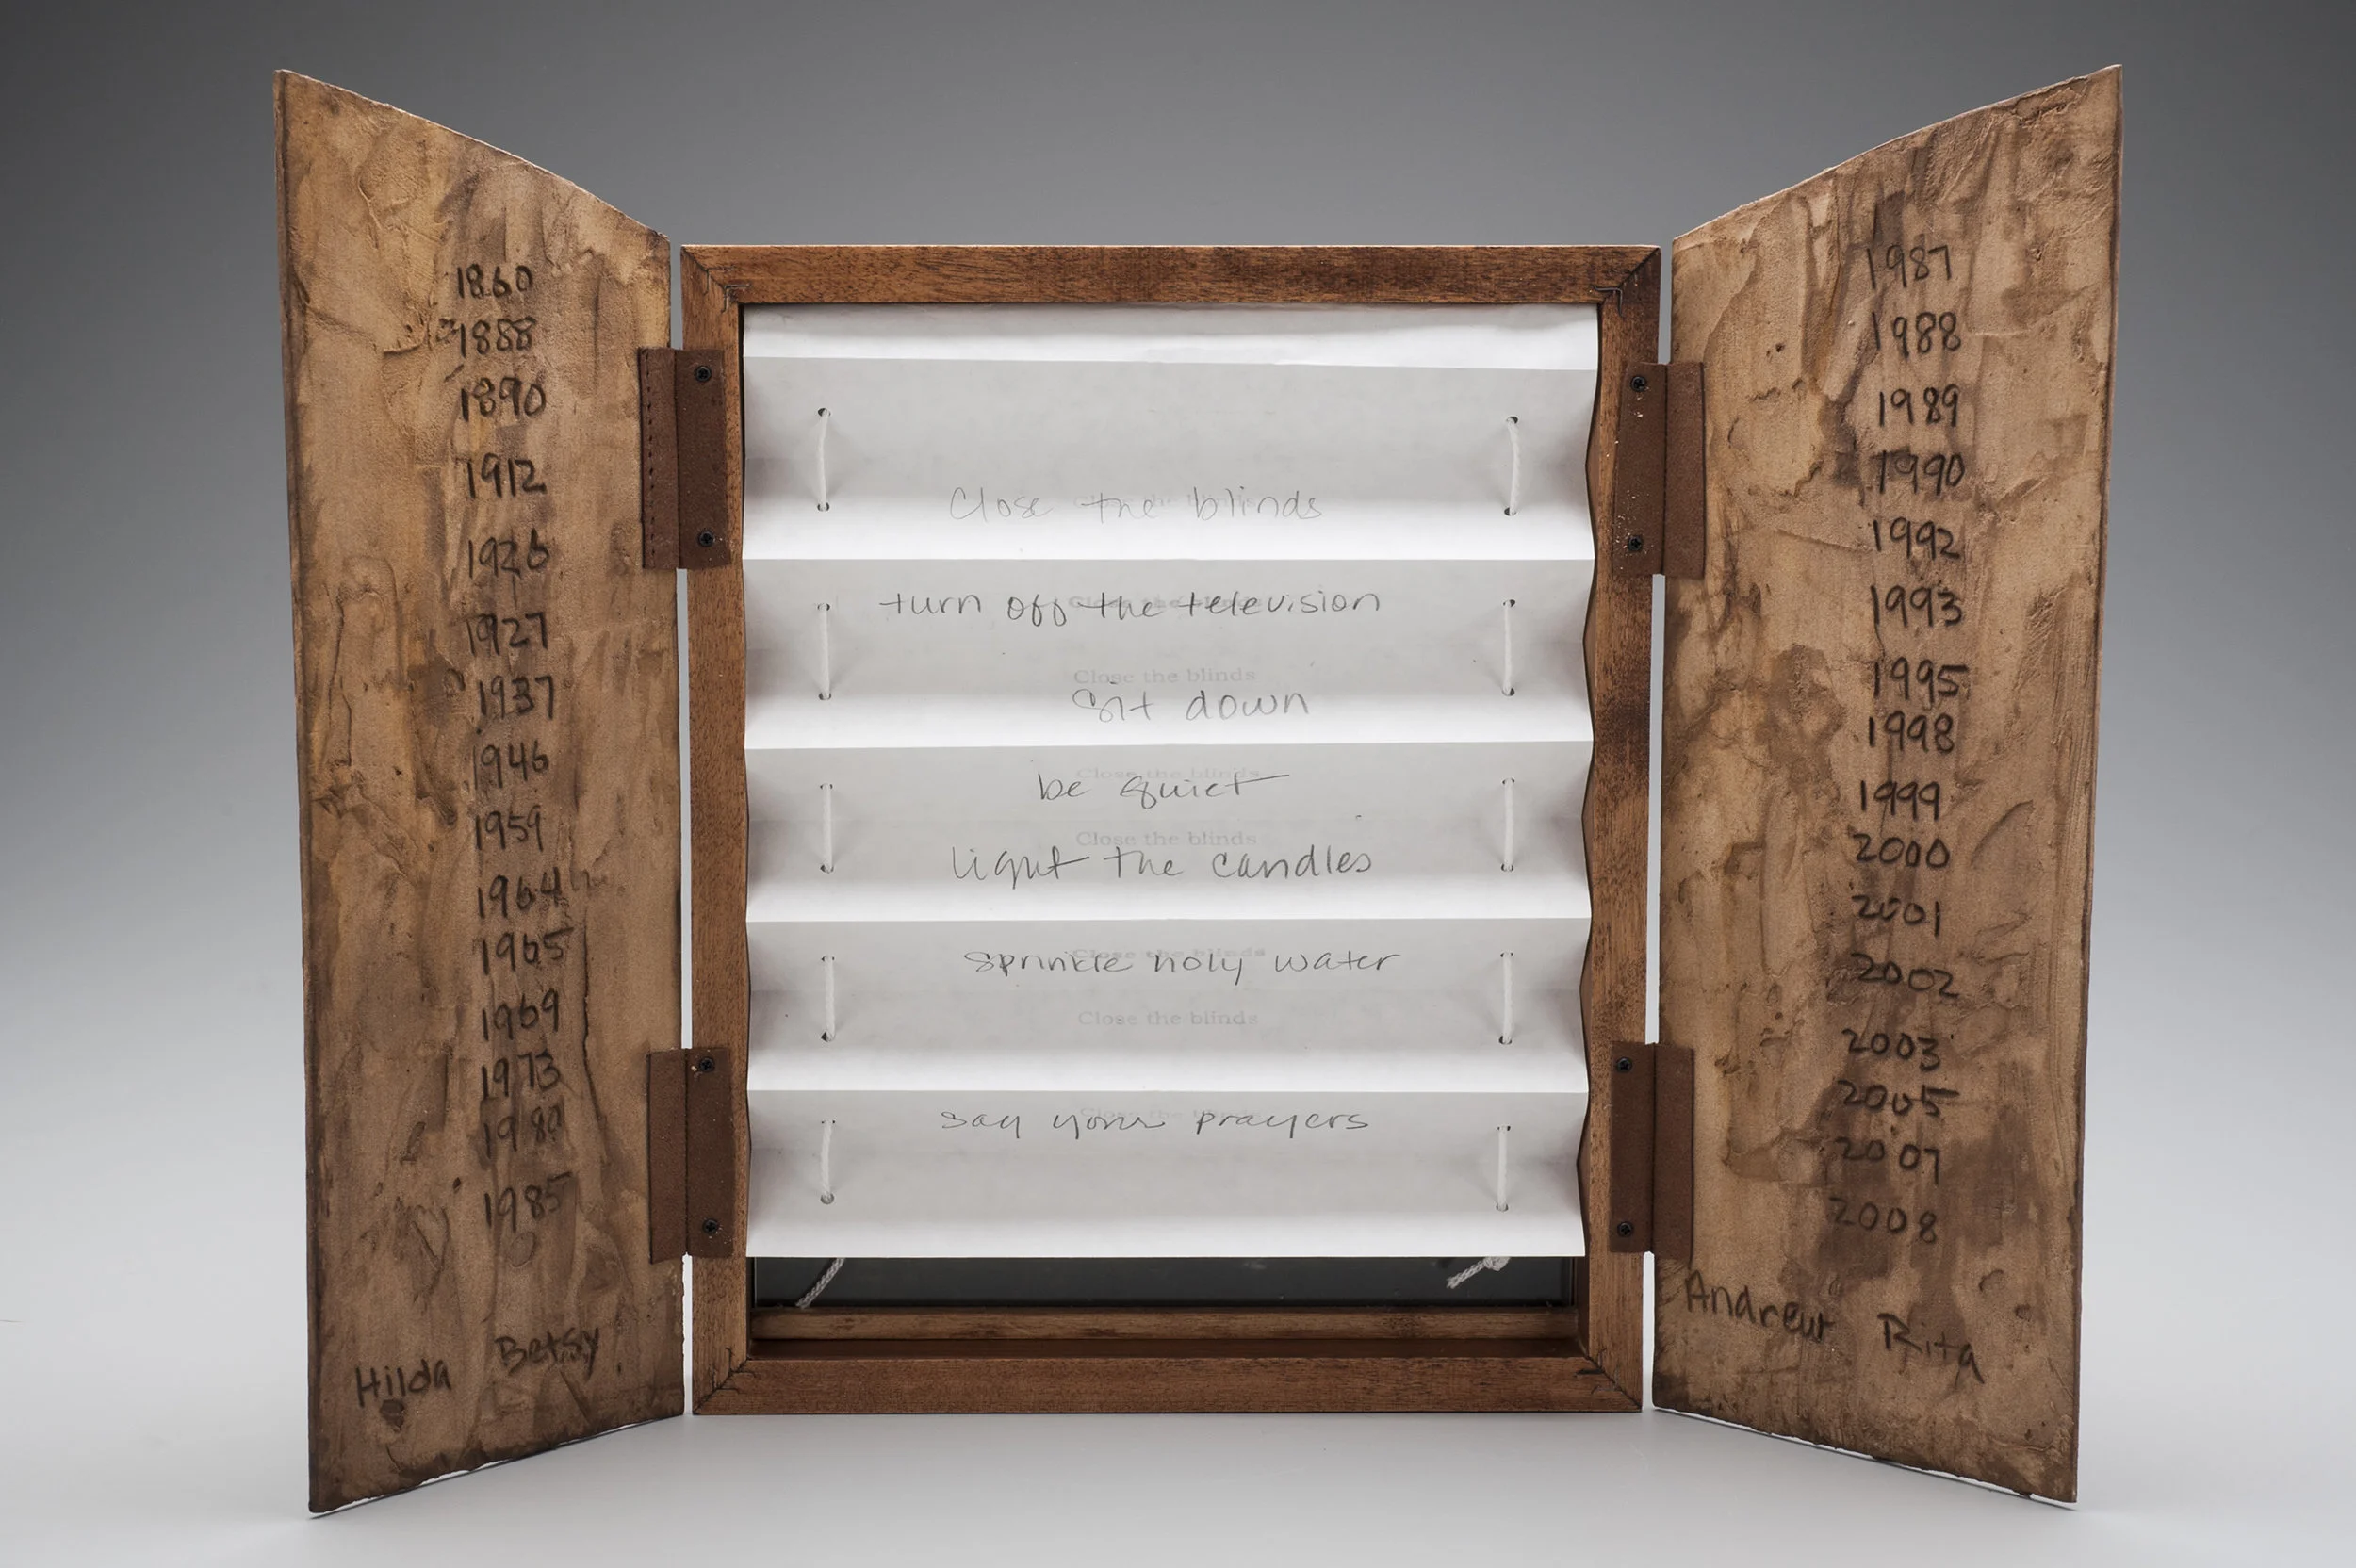 1860
1888
1890
1912
1926
1927
1937
1946
1959
1964
1965
1969
1973
1980
1985
Hilda Betsy
Close the blinds
Close the blinds
turn off the television
Close the blinds
Close the blinds
Sit down
Close the blinds
be quiet
Close the blinds
light the candles
Close the blinds
sprinkle holy water
Close the blinds
Close the blinds
say your prayers
1987
1988
1989
1990
1992
1993
1995
1998
1999
2000
2001
2002
2003
2005
2007
2008
Andrew Rita